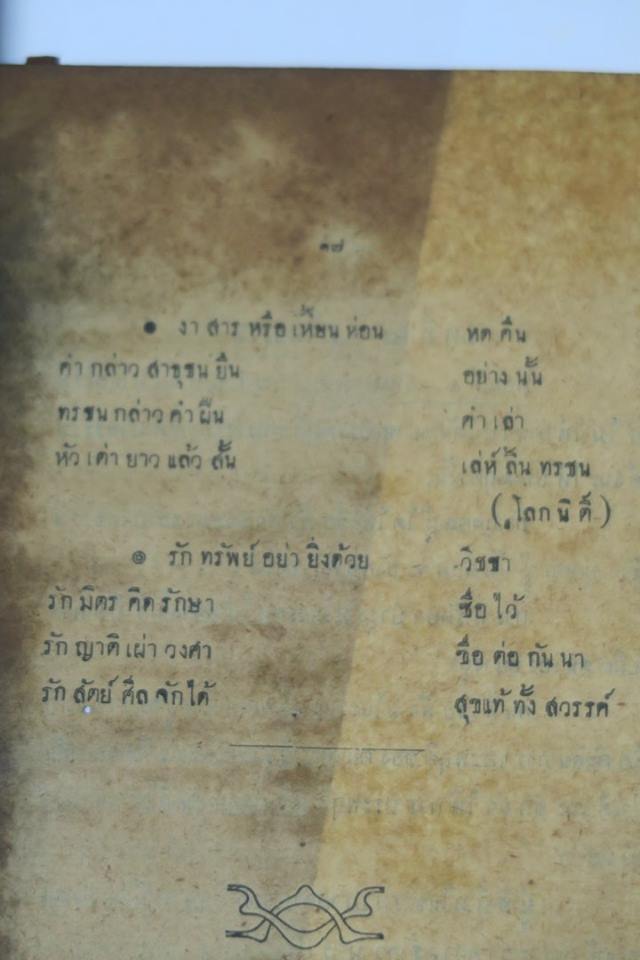 ๑๗
๏ งา สาร หรือ เหี้ยน ห่อน หด คืน
คำ กล่าว สาธุชน ยืน อย่าง นั้น
ทรชน กล่าว คำ ผืน คำ เล่า
หัว เต่า ยาว แล้ว สั้น เล่ห์ ลิ้น ทรชน
( โลก นิ ติ์ )
๏ รัก ทรัพย์ อย่า ยิ่งด้วย วิชชา
รัก มิตร คิด รักษา ซื่อ ไว้
รัก ญาติ เผ่า วงศา ซื่อ ต่อ กัน นา
รัก สัตย์ ศิล จักได้ สุขแท้ ทั้ง สวรรค์